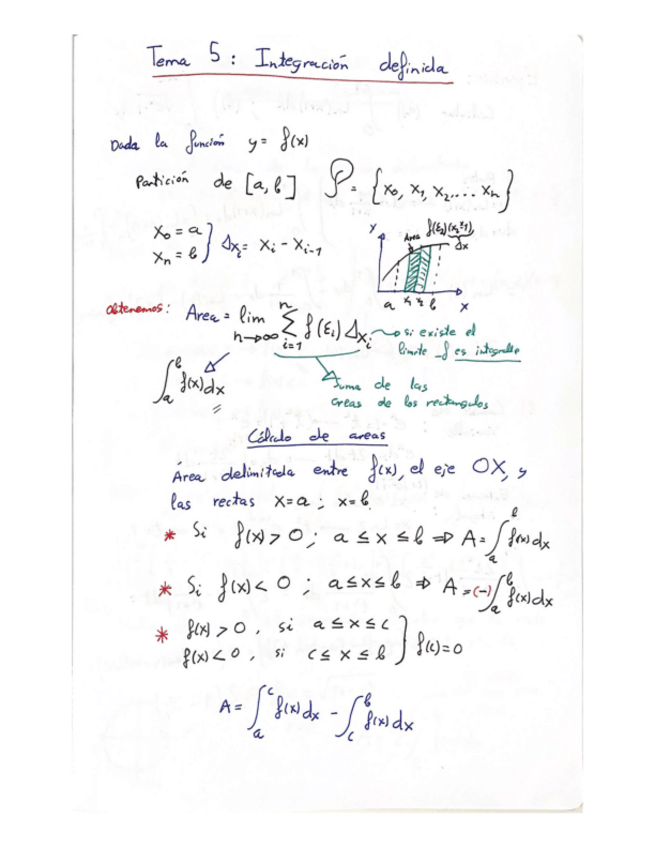 Tema 5: Integración definida
Dada la función y = f(x)
Partición de [a, b] P = {x₀, x₁, x₂.... xₙ}
x₀ = a
xₙ = b } Δxᵢ = xᵢ - xᵢ₋₁
y
Area
Δx
a x₁ x₂ b x
Obtenemos: Area = lim n→∞ Σ i=1 n f(εᵢ) Δxᵢ → si existe el
límite f es integrable
∫ₐᵇ f(x)dx
Suma de las
areas de los rectangulos
Cálculo de areas
Área delimitada entre f(x), el eje OX, y
las rectas x=a ; x=b.
* Si f(x) > 0 ; a ≤ x ≤ b ⇒ A = ∫ₐᵇ f(x)dx
* Si f(x) < 0 ; a ≤ x ≤ b ⇒ A = (-)∫ₐᵇ f(x)dx
* f(x) > 0, si a ≤ x ≤ c
f(x) < 0, si c ≤ x ≤ b } f(c)=0
A = ∫ₐᶜ f(x)dx - ∫_c^b f(x)dx